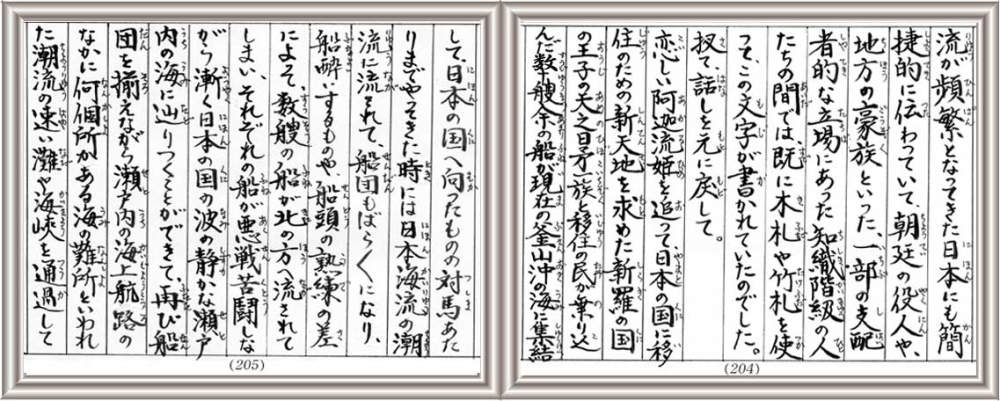 流が頻繁となってきた日本にも簡
捷的に伝わっていて、朝廷の役人や、
地方の豪族といった、一部の支配
者的な立場にあった知識階級の人
たちの間では、既に木札や竹札を使
って、この文字が書かれていたのでした。
扨て、話しを元に戻して。
恋しい阿迦流姫を追って、日本の国に移
住のための新天地を求めた新羅の国
の王子の天之日矛一族と移住の民が乗り込
んだ数艘余の船が現在の釜山沖の海に集結
(204)
して、日本の国へ向ったものの対馬あた
りまでやってきた時には日本海流の潮
流に流されて、船団もばら〱になり、
船酔いするものや、船頭の熟練の差
によって、数艘の船が北の方へ流されて
しまい、それぞれの船が悪戦苦闘しな
がら漸く日本の国の波の静かな瀬戸
内の海に辿りつくことができて、再び船
団を揃えながら瀬戸内の海上航路の
なかに何個所かある海の難所といわれ
た潮流の速い灘や海峡を通過して
(205)